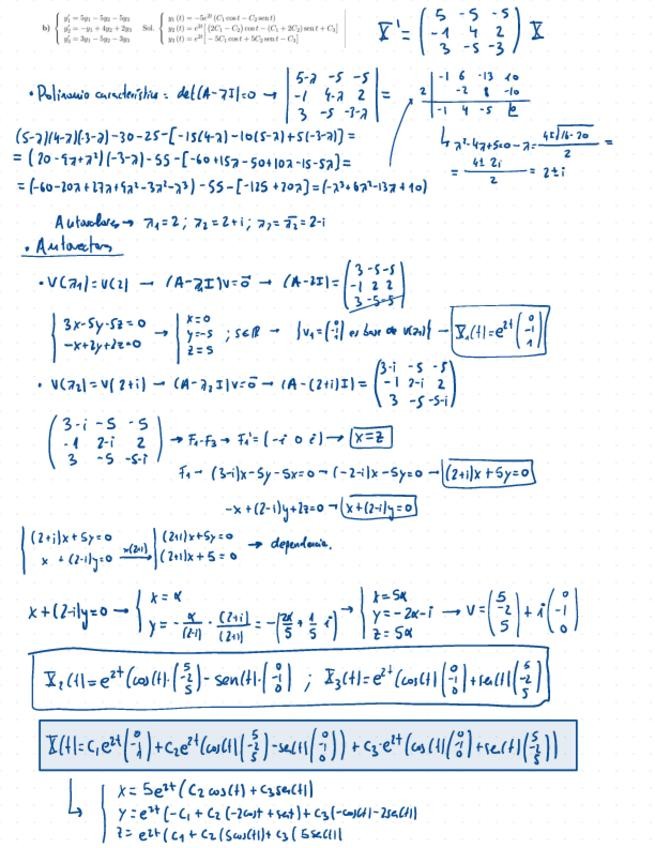 b) { y₁' = 5y₁ - 5y₂ - 5y₃
y₂' = -y₁ + 4y₂ + 2y₃
y₃' = 3y₁ - 5y₂ - 3y₃
Sol. { y₁(t) = -5e^{2t}(C₁ cos t - C₂ sen t)
y₂(t) = e^{2t}[(2C₁ - C₂) cos t - (C₁ + 2C₂) sen t + C₃]
y₃(t) = e^{2t}[-5C₁ cos t + 5C₂ sen t - C₃]
X' = (5 -5 -5 / -1 4 2 / 3 -5 -3) X
• Polinomio característico = det(A-λI)=0 → |5-λ -5 -5 / -1 4-λ 2 / 3 -5 -3-λ| =
-1 6 -13 10
2 | -2 8 -10
-1 4 -5 0
(5-λ)(4-λ)(-3-λ)-30-25-[-15(4-λ)-10(5-λ)+5(-3-λ)]=
= (20-9λ+λ²)(-3-λ)-55-[-60+15λ-50+10λ-15-5λ]=
= (-60-20λ+27λ+9λ²-3λ²-λ³)-55-[-125+20λ]=(-λ³+6λ²-13λ+10)
↳ λ²-4λ+5=0 → λ= (4±√16-20)/2 =
= (4±2i)/2 = 2±i
Autovalores → λ₁=2; λ₂=2+i; λ₃=λ̄₂=2-i
• Autovectores
• V(λ₁)=V(2) → (A-λ₁I)v=0⃗ → (A-2I)=(3 -5 -5 / -1 2 2 / 3 -5 -5)
{ 3x-5y-5z=0 / -x+2y+2z=0 → { x=0 / y=-s / z=s ; s∈ℝ → {v₁=(0 / -1 / 1) es base de V(λ₁)} → X₁(t)=e^{2t}(0 / -1 / 1)
• V(λ₂)=V(2+i) → (A-λ₂I)v=0⃗ → (A-(2+i)I)=(3-i -5 -5 / -1 2-i 2 / 3 -5 -5-i)
(3-i -5 -5 / -1 2-i 2 / 3 -5 -5-i) → F₁-F₃ → F₁'=(-i 0 i) → x=z
F₁ → (3-i)x-5y-5x=0 → (-2-i)x-5y=0 → (2+i)x+5y=0
-x+(2-i)y+2z=0 → x+(2-i)y=0
{ (2+i)x+5y=0 / x+(2-i)y=0 →x(2+i) { (2+i)x+5y=0 / (2+i)x+5=0 → dependencia.
x+(2-i)y=0 → { x=α / y=-α/(2-i)·(2+i)/(2+i)=-(2α/5+1/5 i) → { x=5α / y=-2α-i / z=5α → v=(5 / -2 / 5)+i(0 / -1 / 0)
X₂(t)=e^{2t}(cos(t)·(5 / -2 / 5)-sen(t)·(0 / -1 / 0) ; X₃(t)=e^{2t}(cos(t)(0 / -1 / 0)+sen(t)(5 / -2 / 5)
X(t)=C₁e^{2t}(0 / -1 / 1)+C₂e^{2t}(cos(t)(5 / -2 / 5)-sen(t)(0 / -1 / 0))+C₃·e^{2t}(cos(t)(0 / -1 / 0)+sen(t)(5 / -2 / 5))
↳ { x=5e^{2t}(C₂cos(t)+C₃sen(t)
y=e^{2t}(-C₁+C₂(-2cost+sent)+C₃(-cos(t)-2sen(t)
z=e^{2t}(C₁+C₂(5cos(t)+C₃(5sen(t)